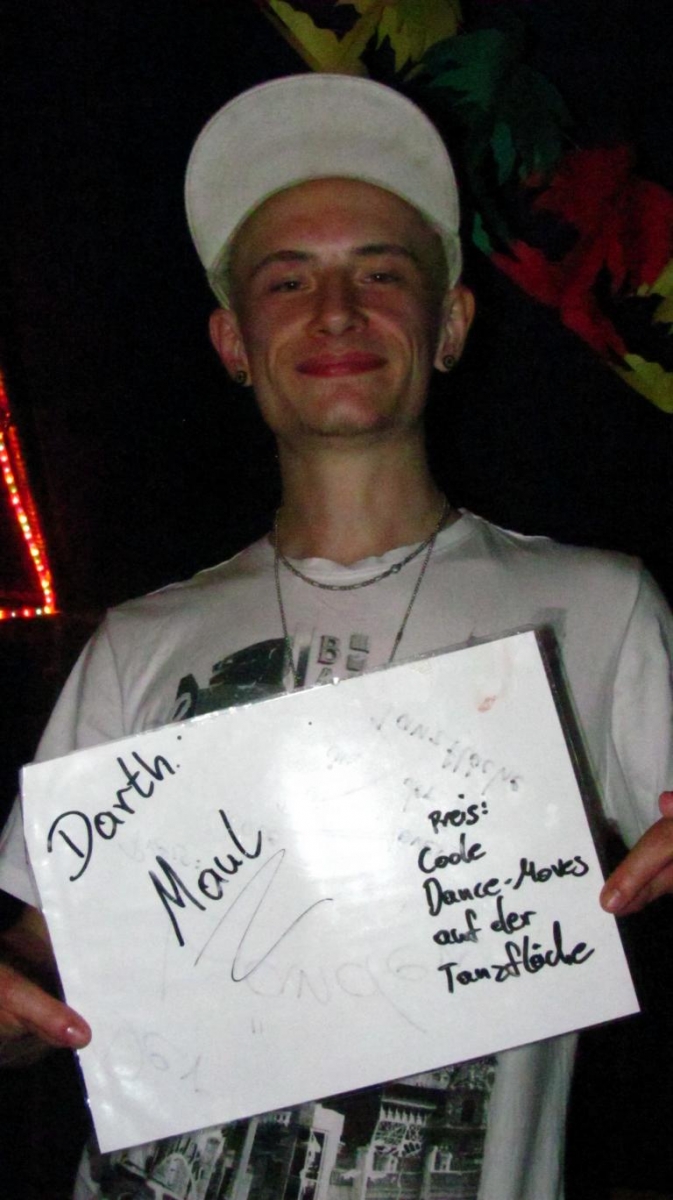 Darth
Maul
Preis:
Coole
Dance-Moves
auf der
Tanzfläche